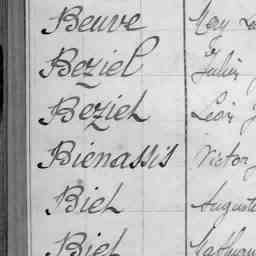 Beuve
Beziel Julien
Beziel Léon
Bienassis Victor
Biet Auguste
Biet Mathurin